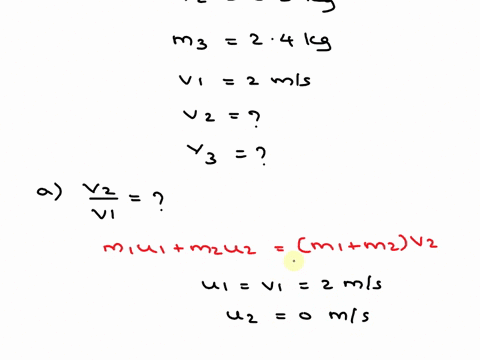 m3 = 2.4 kg
v1 = 2 m/s
v2 = ?
v3 = ?
a) v2/v1 = ?
m1u1 + m2u2 = (m1+m2)v2
u1 = v1 = 2 m/s
u2 = 0 m/s